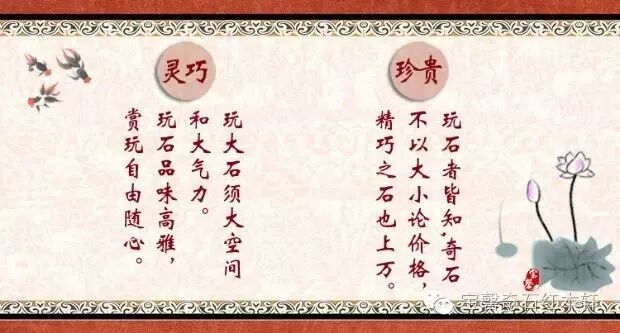 珍贵
玩石者皆知,奇石
不以大小论价格,
精巧之石也上万。
灵巧
玩大石须大空间
和大气力。
玩石品味高雅,
赏玩自由随心。
宝馨奇石红木轩